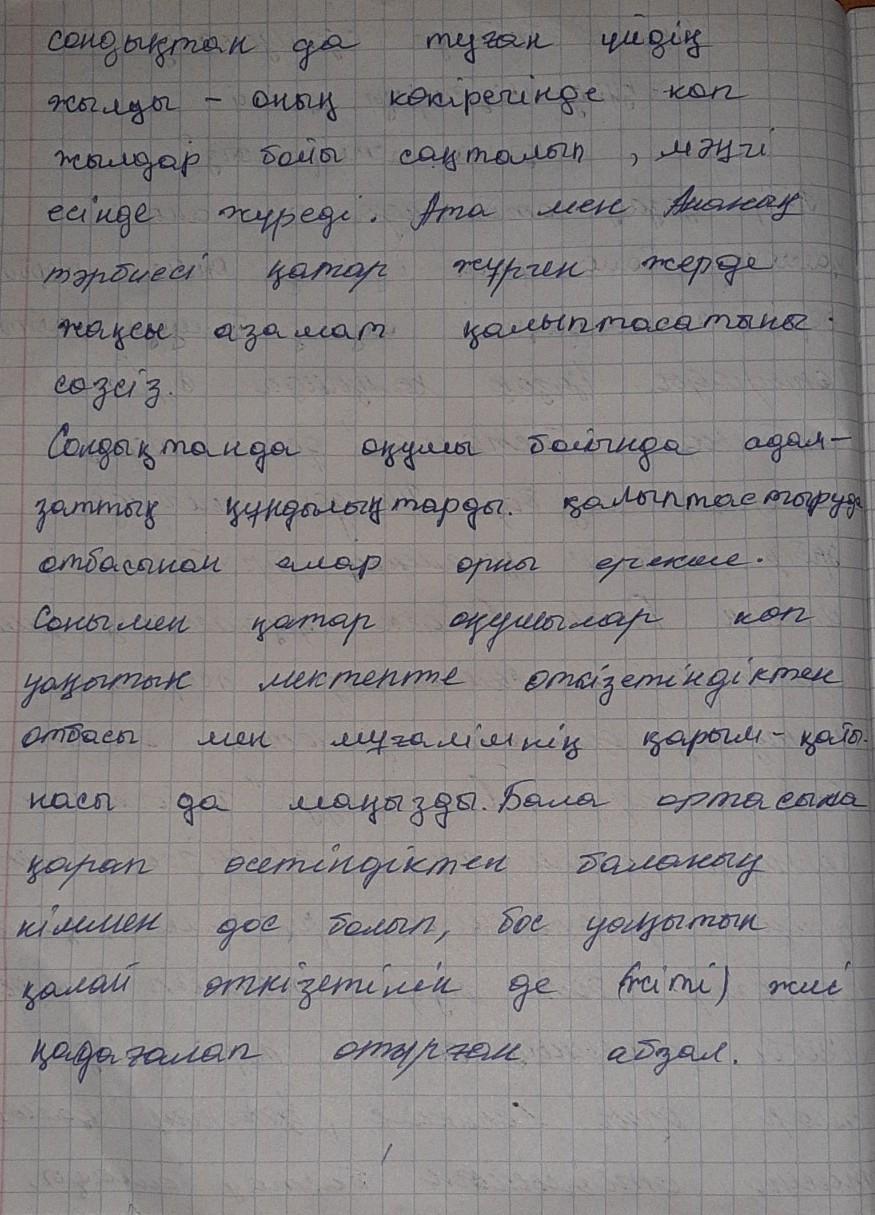 сондықтан да туған үйдің
жылды - оның көкірегінде көп
жылдар бойы сақталып, мәңгі
есінде жүреді. Ата мен Ананаң
тәрбиесі қатар жүрген жерде
жақсы азамат қалыптасатыны
сөзсіз.
Сондықтанда оқушы бойында адам-
заттық құндылықтарды. қалыптастыруда
отбасынан алар орны ерекше.
Сонымен қатар оқушылар көп
уақытын мектепте өткізетіндіктен
отбасы мен мұғалімнің қарым-қаты.
насы да маңызды. Бала ортасына
қарап өсетіндіктен баланың
кіммен дос болып, бос уақытын
қалай өткізетінін де (жіті) жиі
қадағалап отырған абзал.